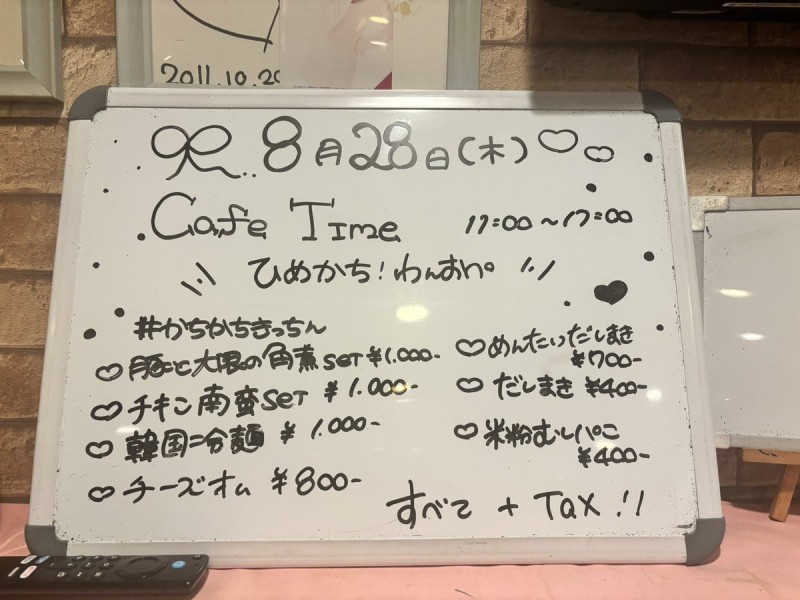 2011.10.20
8月28日(木)
Cafe Time
11:00～17:00
ひめかち！わんおぺ。
#かちかちきっちん
♡豚と大根の角煮SET ¥1.000-
♡チキン南蛮SET ¥1.000-
♡韓国=分麺 ¥1.000-
♡チーズオム ¥800-
♡めんたいだしまき
¥700-
♡だしまき ¥400-
♡米粉むしパン
¥400-
すべて + TAX!!